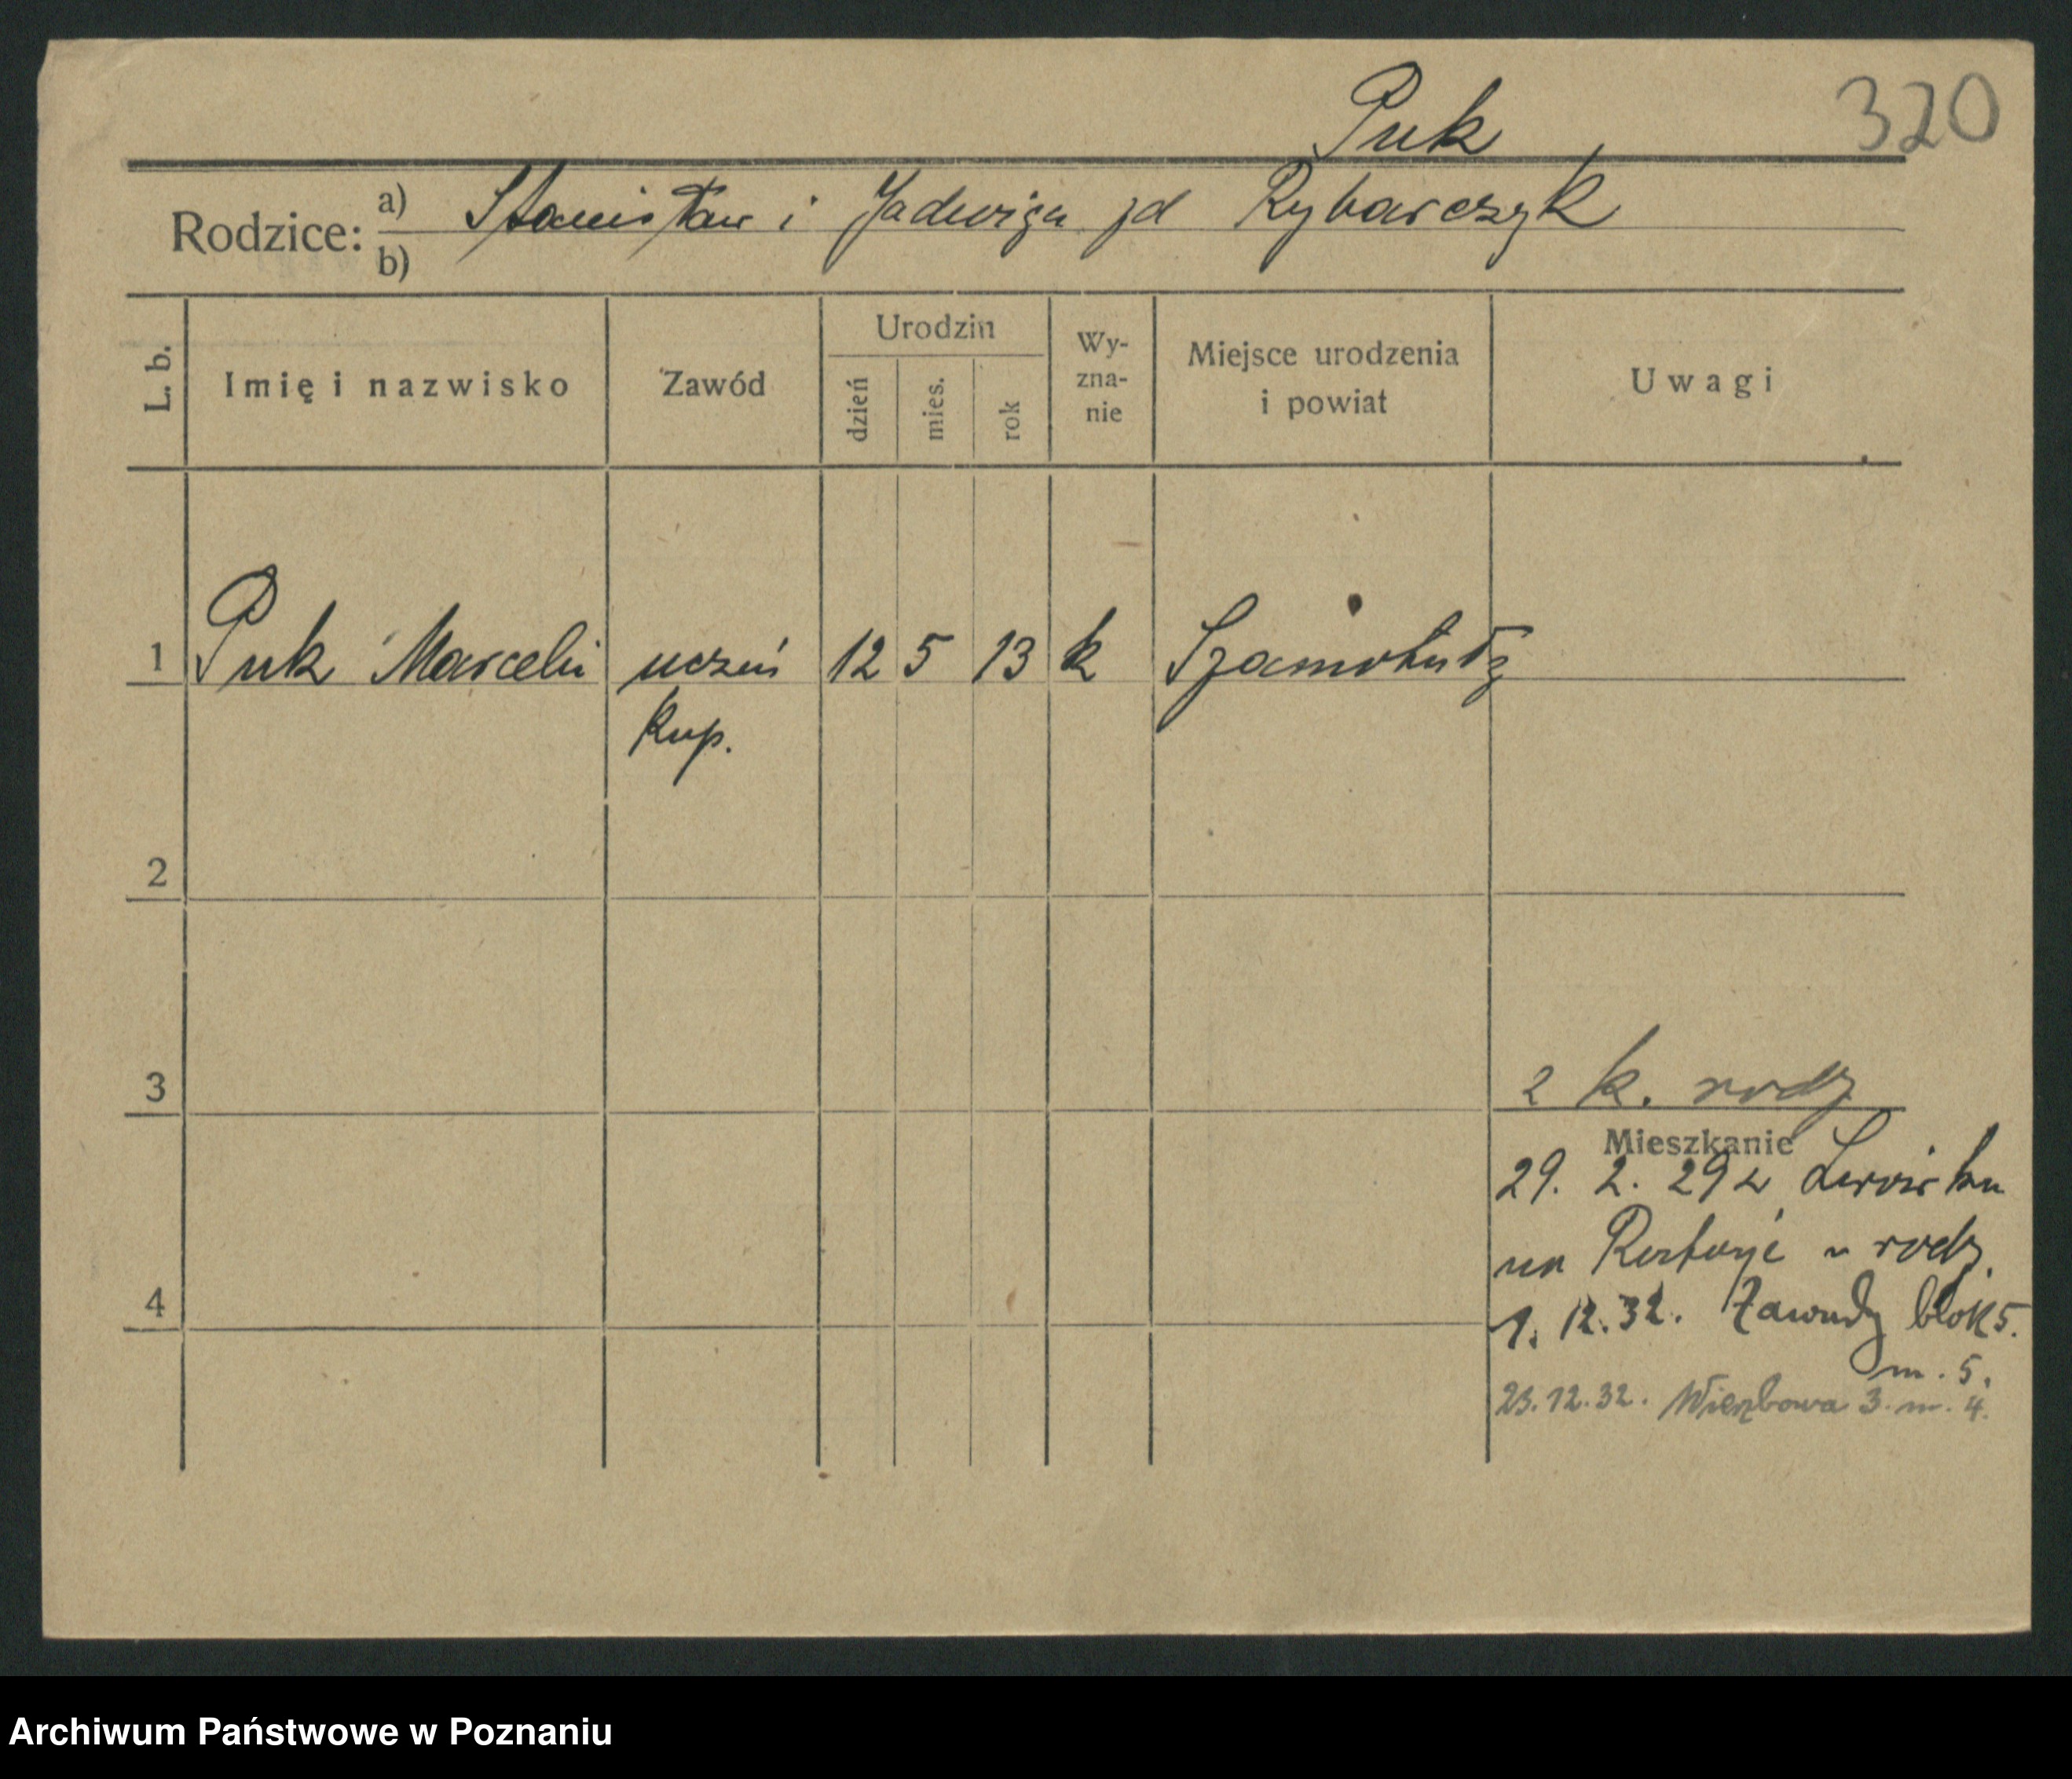 Puk 320
Rodzice: a) Stanisław i Jadwiga zd Rybarczyk
b)
L. b. Imię i nazwisko Zawód Urodzin dzień mies. rok Wy-zna-nie Miejsce urodzenia i powiat Uwagi
1 Puk Marceli uczeń 12 5 13 k Szamotuły
kup.
2
3 2 k. rodz
Mieszkanie
29. 2. 29 z
na u rodz.
1. 12. 32. Zawady blok 5.
m. 5.
23. 12. 32. Wierzbowa 3. m. 4.
4
Archiwum Państwowe w Poznaniu